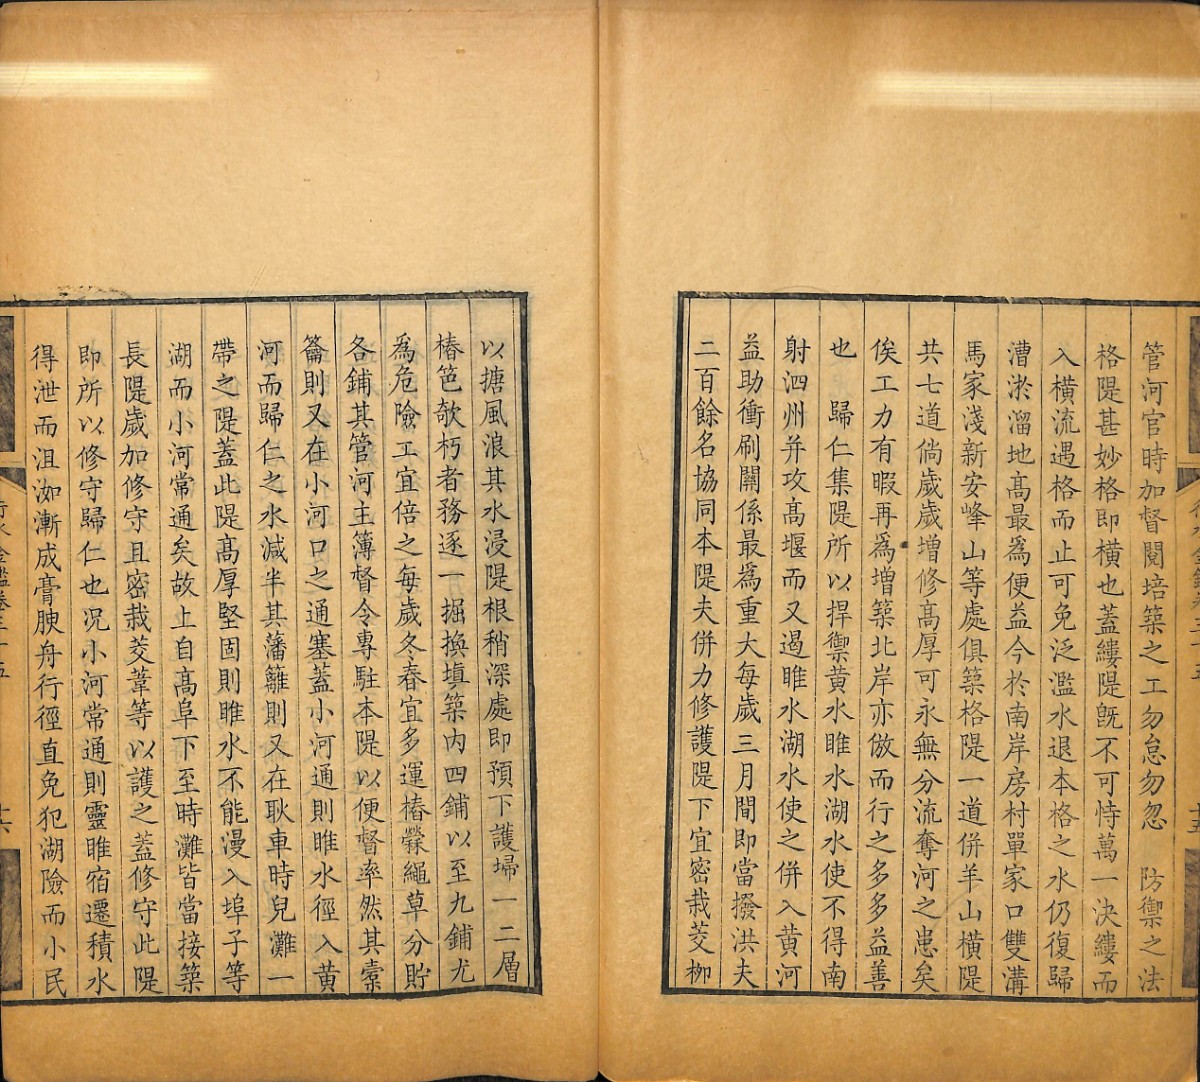 管河官時加督閱培築之工勿怠勿忽　防禦之法
格隄甚妙格即橫也蓋縷隄旣不可恃萬一決縷而
入橫流遇格而止可免泛濫水退本格之水仍復歸
漕淤溜地高最爲便益今於南岸房村單家口雙溝
馬家淺新安峰山等處俱築格隄一道併羊山橫隄
共七道倘歲歲增修高厚可永無分流奪河之患矣
俟工力有暇再爲增築北岸亦倣而行之多多益善
也　歸仁集隄所以捍禦黃水睢水湖水使不得南
射泗州并攻高堰而又遏睢水湖水使之併入黃河
益助衝刷關係最爲重大每歲三月間即當撥洪夫
二百餘名協同本隄夫併力修護隄下宜密栽茭柳
以搪風浪其水浸隄根稍深處即預下護埽一二層
樁笆欹朽者務逐一掘換填築內四鋪以至九鋪尤
爲危險工宜倍之每歲冬春宜多運樁檾繩草分貯
各鋪其管河主簿督令專駐本隄以便督率然其槖
籥則又在小河口之通塞蓋小河通則睢水徑入黃
河而歸仁之水減半其藩籬則又在耿車時兒灘一
帶之隄蓋此隄高厚堅固則睢水不能漫入埠子等
湖而小河常通矣故上自高阜下至時灘皆當接築
長隄歲加修守且密栽茭葦等以護之蓋修守此隄
即所以修守歸仁也况小河常通則靈睢宿遷積水
得泄而沮洳漸成膏腴舟行徑直免犯湖險而小民